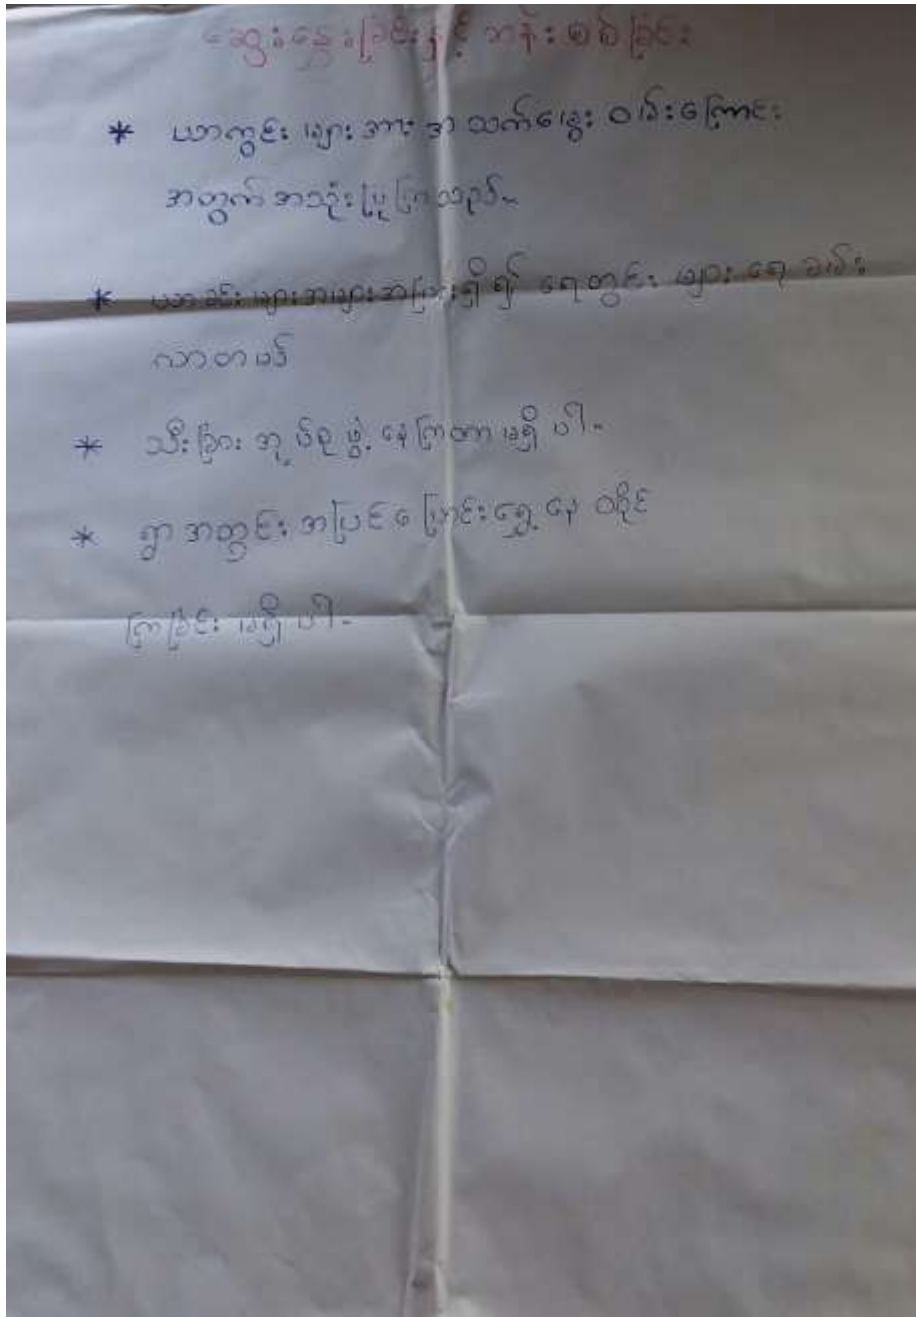 ဆွေးနွေးခြင်းနှင့် ဘန်းစစ်ခြင်း
* ယာကွင်း များ အား အ သက်မွေး ဝမ်းကြောင်း
အတွက် အသုံးပြုကြသည်။
* ယာခင်း များအများအပြားရှိ၍ ရေတွင်း များ ရေ ခမ်း
လာတမဒ်
* သီးခြား အုပ်စု ဖွဲ့ နေကြတာ မရှိ ပါ။
* ရွာ အတွင်း အပြင် ပြောင်းရွှေ့ နေ ထိုင်
ကြခြင်း မရှိ ပါ။